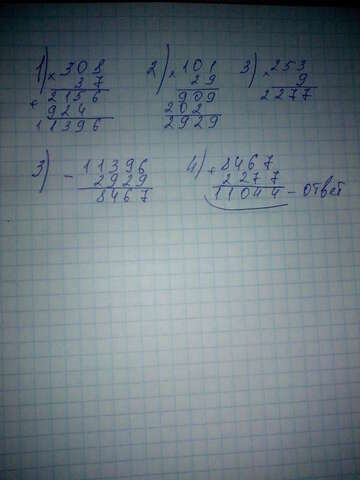 1) × 308
37
+ 2156
924
11396
2) × 101
29
909
202
2929
3) × 253
9
2277
3) - 11396
2929
8467
4) + 8467
2277
11044 - ответ